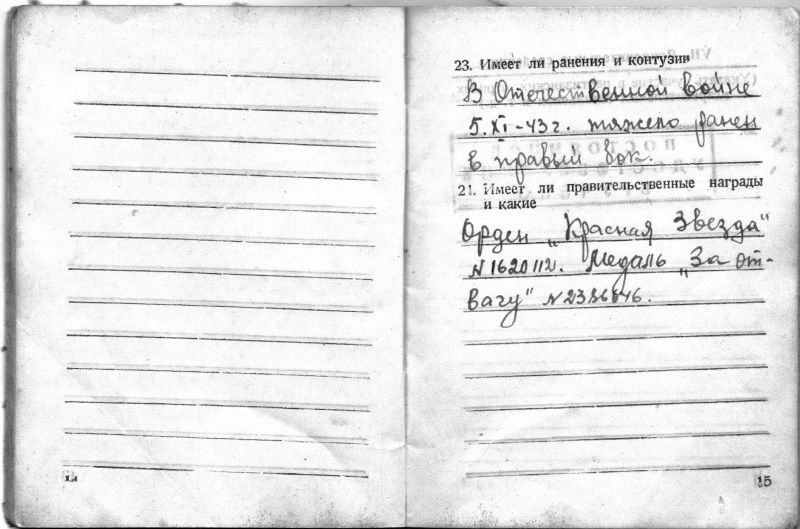 23. Имеет ли ранения и контузии
В Отечественной войне
5.XI-43г. тяжело ранен
в правый бок.
21. Имеет ли правительственные награды
и какие
Орден „Красная Звезда"
N1620112. Медаль „За от-
вагу"
15